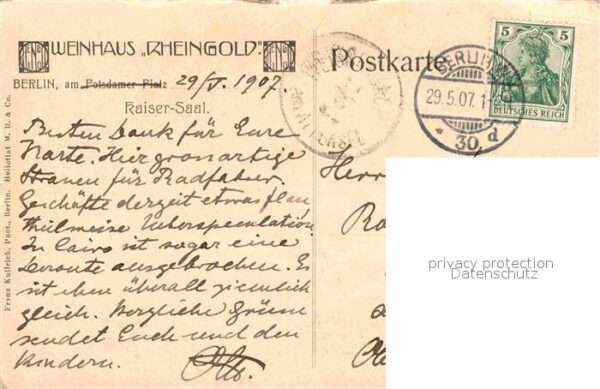 WEINHAUS „RHEINGOLD".
BERLIN, am Potsdamer Platz 29/V. 1907.
Kaiser-Saal.
Besten Dank für Eure
Karte. Hier grossartige
Strassen für Radfahrer.
Geschäfte derzeit etwas flau
theilweise Ueberspeculation.
In Cairo ist sogar eine
Deroute ausgebrochen. Es
ist eben überall ziemlich
gleich. Herzliche Grüsse
sendet Euch und den
Kindern. Otto.
Franz Kullrich, Phot., Berlin. Heliotint M. R. & Co.
Postkarte
BERLIN W.
29.5.07. 1
* 30 d
5 5
DEUTSCHES REICH
Herr
privacy protection
Datenschutz